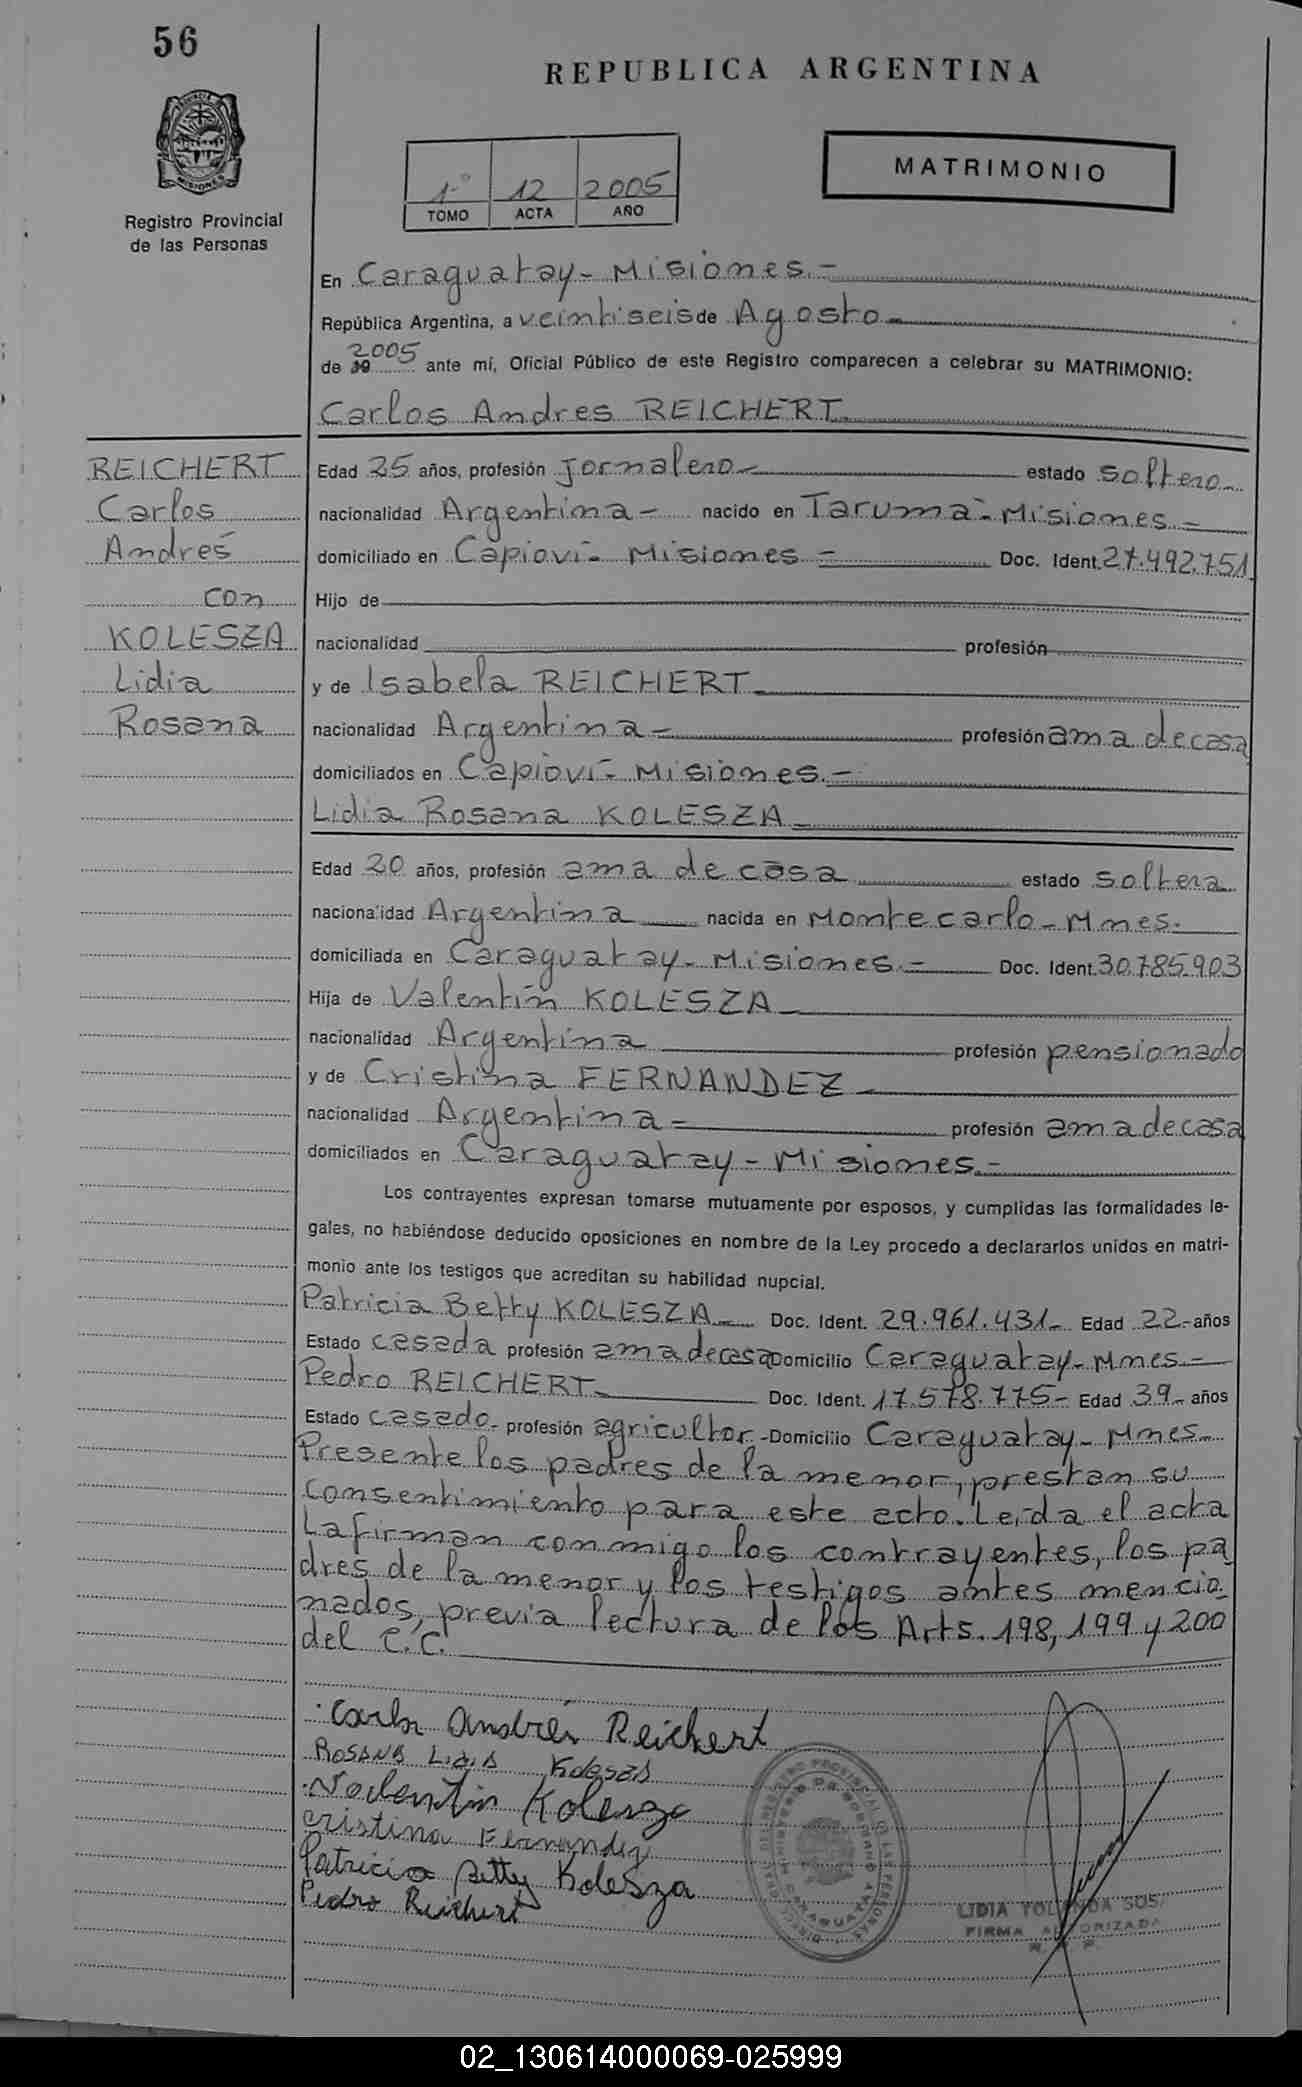 56
REPUBLICA ARGENTINA
MATRIMONIO
1º 12 2005
TOMO ACTA AÑO
PROVINCIA DE
MISIONES
Registro Provincial
de las Personas
En Caraguatay - Misiones.-
República Argentina, a veintiseis de Agosto -
de 19 2005 ante mí, Oficial Público de este Registro comparecen a celebrar su MATRIMONIO:
Carlos Andres REICHERT.
REICHERT
Carlos
Andrés
con
KOLESZA
Lidia
Rosana
Edad 25 años, profesión jornalero - estado soltero -
nacionalidad Argentina - nacido en Tarumá - Misiones -
domiciliado en Capioví - Misiones - Doc. Ident. 27.492.751
Hijo de
nacionalidad profesión
y de Isabela REICHERT -
nacionalidad Argentina - profesión ama de casa
domiciliados en Capioví - Misiones.-
Lidia Rosana KOLESZA -
Edad 20 años, profesión ama de casa estado soltera
nacionalidad Argentina nacida en Montecarlo - Mnes.
domiciliada en Caraguatay - Misiones.- Doc. Ident. 30.785.903
Hija de Valentín KOLESZA -
nacionalidad Argentina profesión pensionado
y de Cristina FERNANDEZ -
nacionalidad Argentina - profesión ama de casa
domiciliados en Caraguatay - Misiones.-
Los contrayentes expresan tomarse mutuamente por esposos, y cumplidas las formalidades le-
gales, no habiéndose deducido oposiciones en nombre de la Ley procedo a declararlos unidos en matri-
monio ante los testigos que acreditan su habilidad nupcial.
Patricia Betty KOLESZA - Doc. Ident. 29.961.431 - Edad 22 - años
Estado casada profesión ama de casa Domicilio Caraguatay - Mnes.-
Pedro REICHERT - Doc. Ident. 17.578.775 - Edad 39 - años
Estado casado - profesión agricultor - Domicilio Caraguatay - Mnes -
Presente los padres de la menor, prestan su
consentimiento para este acto. Leída el acta
La firman conmigo los contrayentes, los pa
dres de la menor y los testigos antes mencio-
nados, previa lectura de los Arts. 198, 199 y 200
del C.C.
Carlos Andrés Reichert
ROSANA LIDIA Kolesza
Valentin Kolesza
cristina Fernandez
Patricia Betty Kolesza
Pedro Reichert
LIDIA YOLANDA SOS
FIRMA AUTORIZADA
R. P. P.
02_130614000069-025999